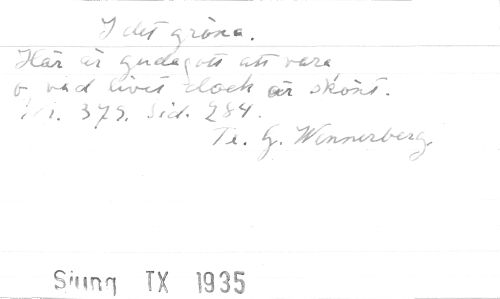 I det gröna.
Här är gudagott att vara,
o vad livet dock är skönt.
Nr. 379. Sid. 284.
Te. G. Wennerberg.
Sjung TX 1935